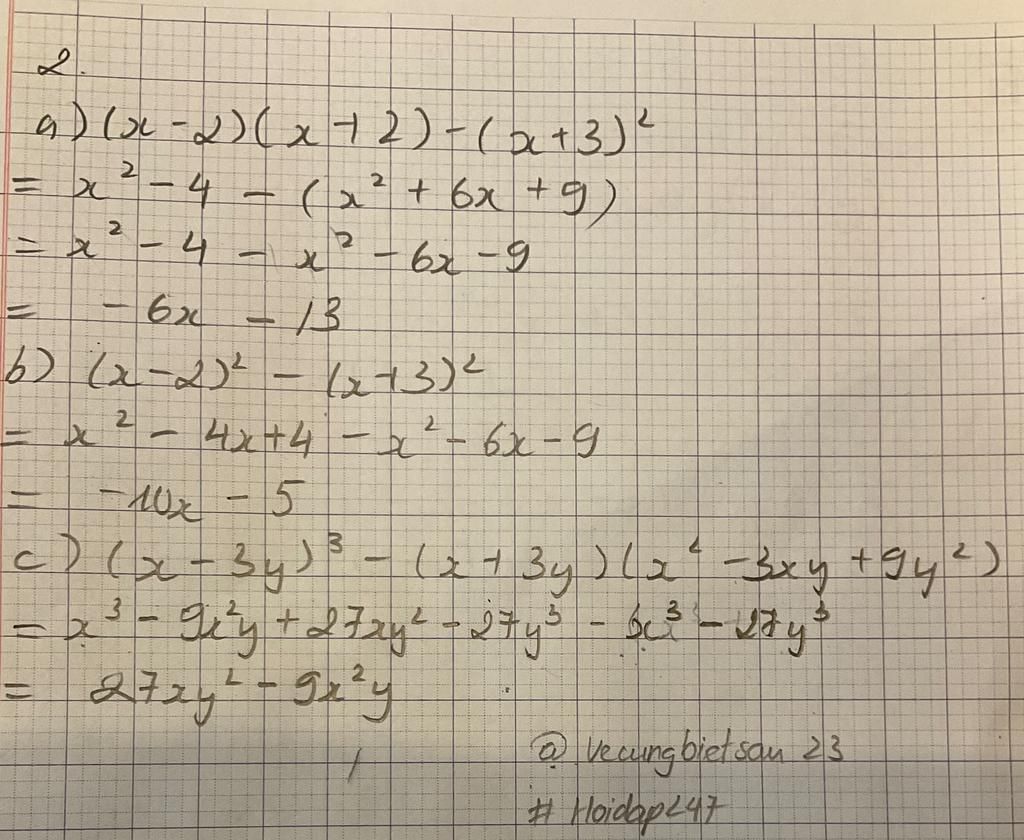 2.
a) (x - 2)(x + 2) - (x + 3)²
= x² - 4 - (x² + 6x + 9)
= x² - 4 - x² - 6x - 9
= - 6x - 13
b) (x - 2)² - (x + 3)²
= x² - 4x + 4 - x² - 6x - 9
= - 10x - 5
c) (x - 3y)³ - (x + 3y)(x² - 3xy + 9y²)
= x³ - 9x²y + 27xy² - 27y³ - x³ - 27y³
= 27xy² - 9x²y
@ vecungbietsau 23
# Hoidap247